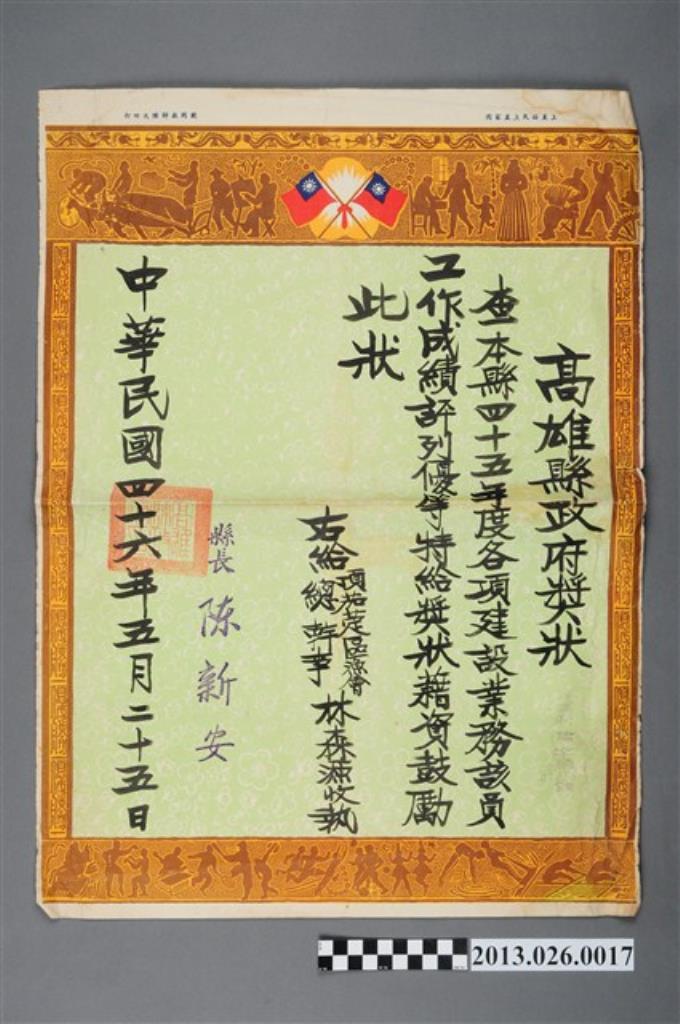 高雄縣政府獎狀
查本縣四十五年度各項建設業務該員
工作成績評列優等特給獎狀藉資鼓勵
此狀
右給
頂茄萣區漁會
總幹事
林森源收執
縣長
陳新安
中華民國四十六年五月二十五日
2013.026.0017